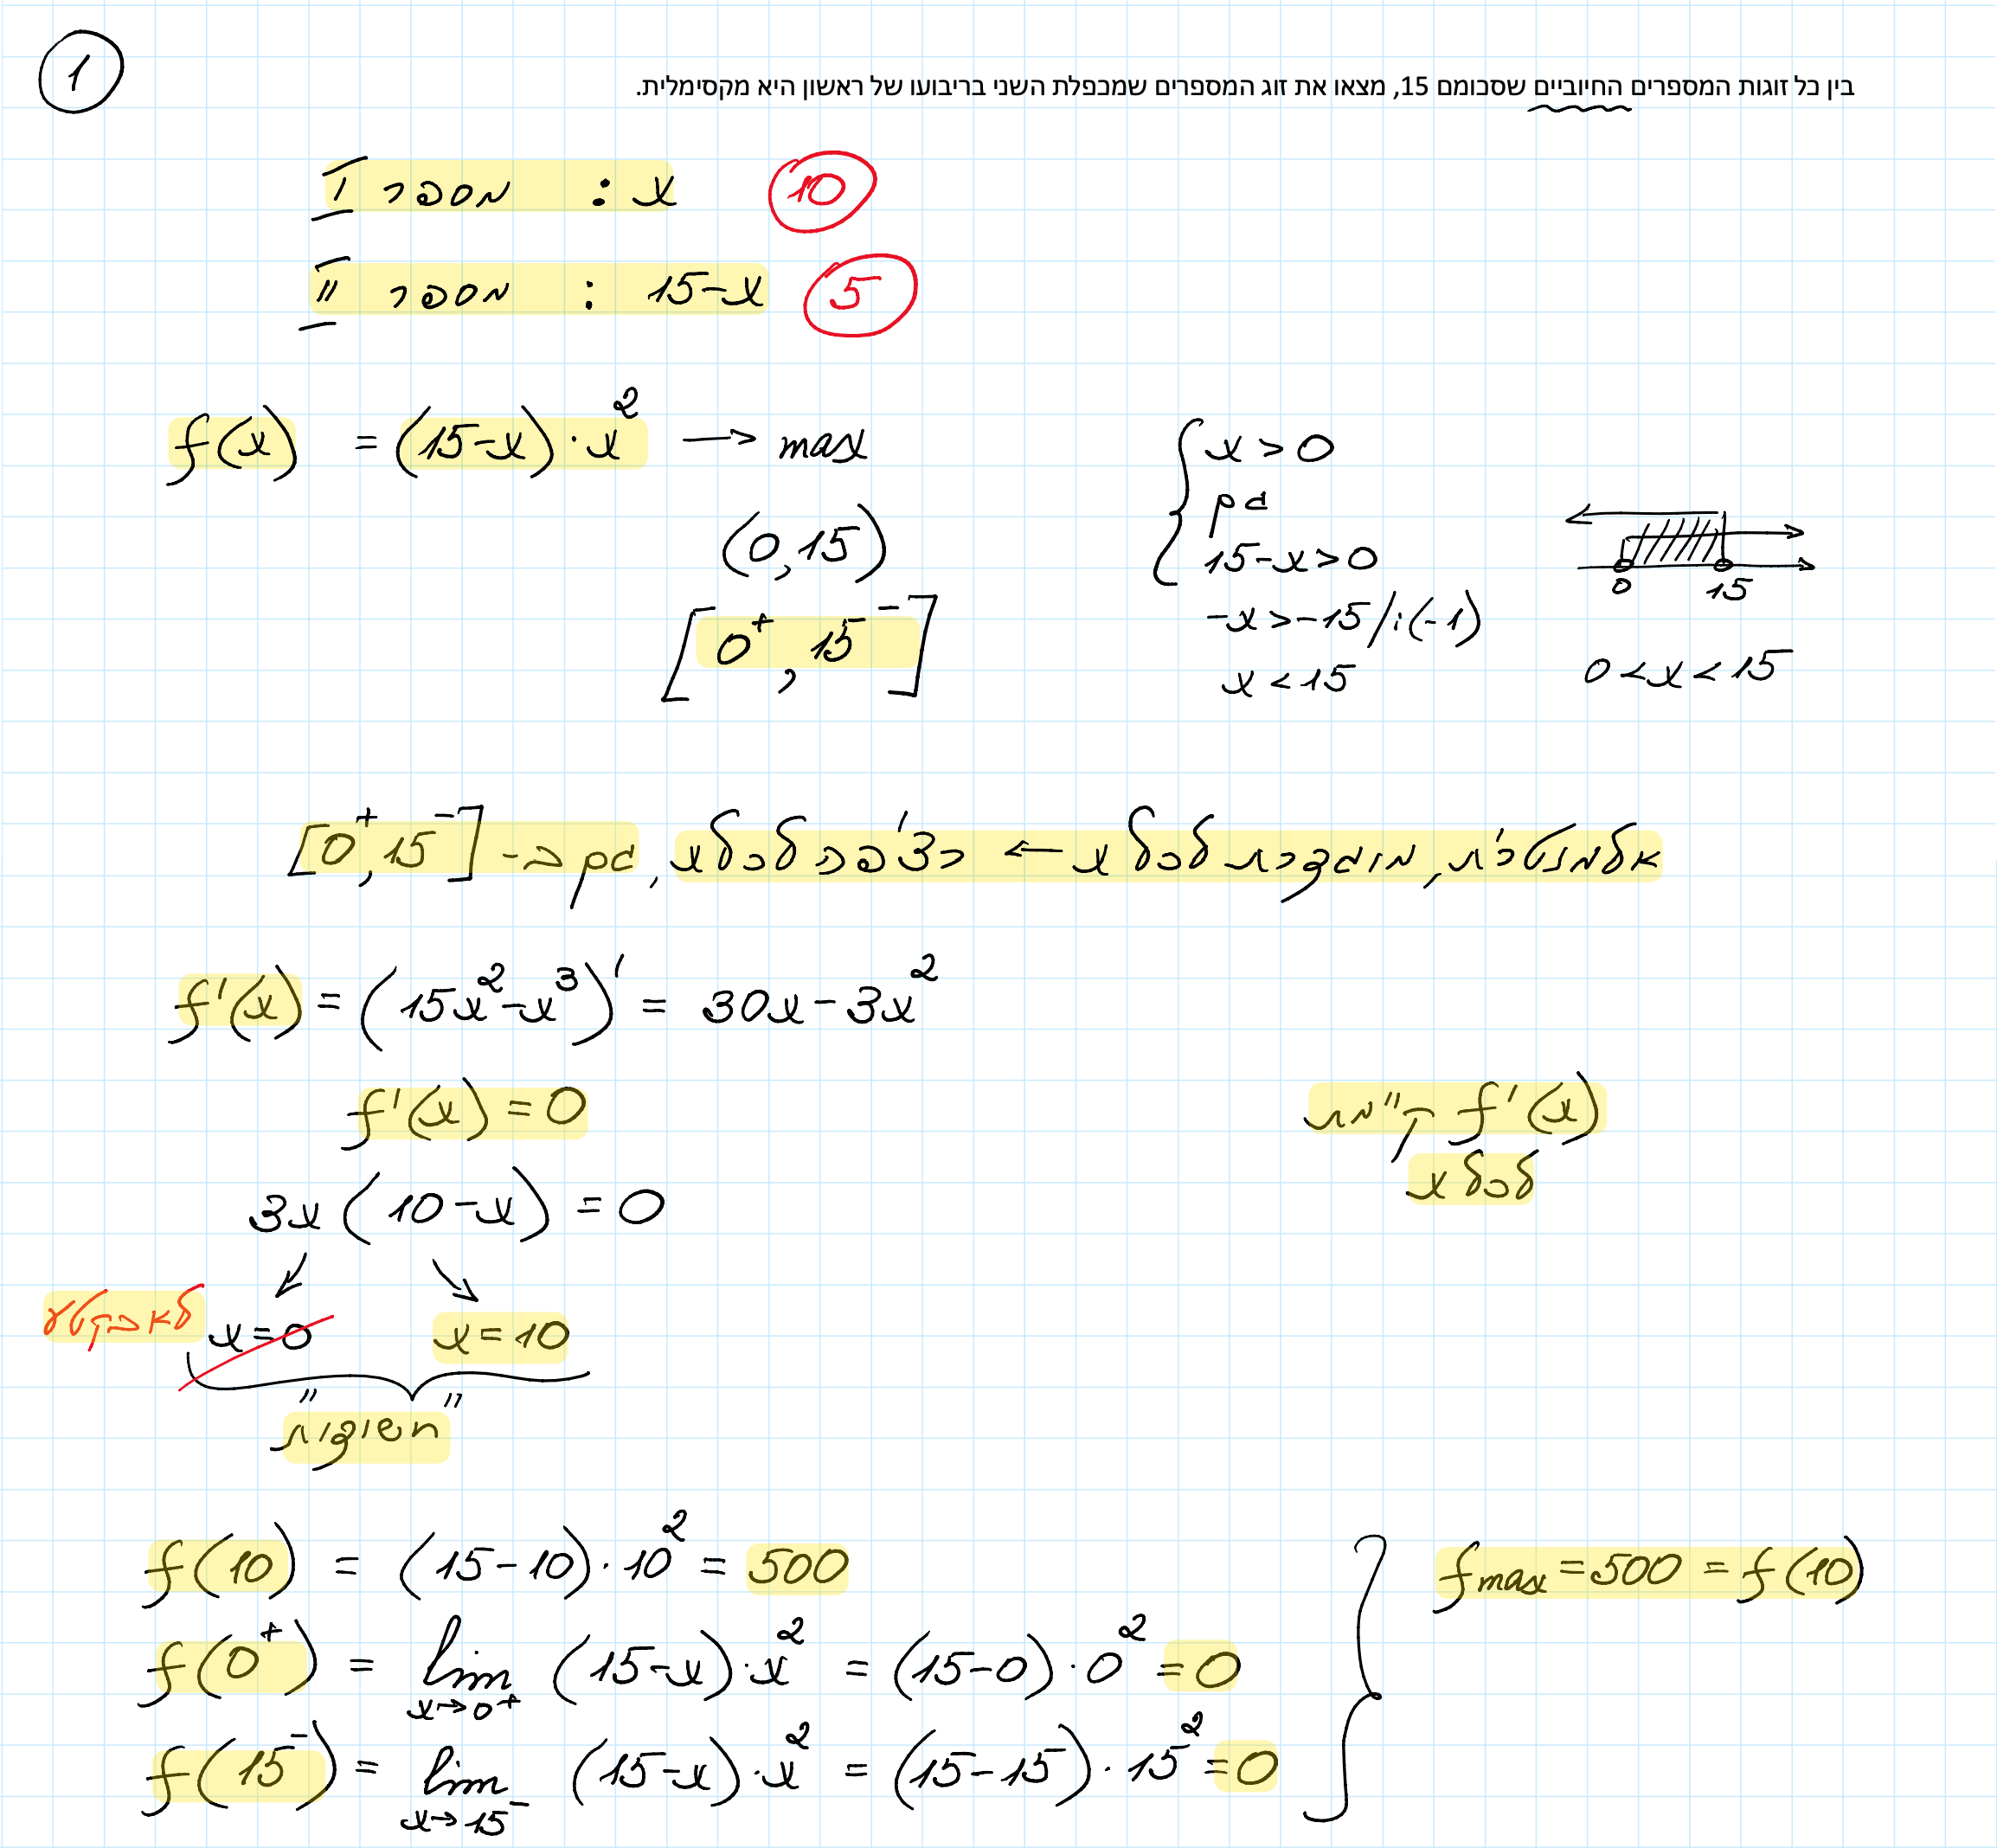 1
בין כל זוגות המספרים החיוביים שסכומם 15, מצאו את זוג המספרים שמכפלת השני בריבועו של ראשון היא מקסימלית.
מספר I : x 10
מספר II : 15-x 5
f(x) = (15-x)·x² → max
(0,15)
[0⁺,15⁻]
x>0
גם
15-x>0
-x>-15 /:(-1)
x<15
0 15
0<x<15
אלמנטרית, מוגדרת לכל x ← רציפה לכל x, גם ב- [0⁺,15⁻]
f'(x) = (15x²-x³)' = 30x-3x²
f'(x)=0
f'(x) קיימת
לכל x
3x(10-x)=0
לא בקטע x=0 x=10
"חשודות"
f(10) = (15-10)·10² = 500
f(0⁺) = lim x→0⁺ (15-x)·x² = (15-0)·0² = 0
f(15⁻) = lim x→15⁻ (15-x)·x² = (15-15)·15² = 0
f max = 500 = f(10)